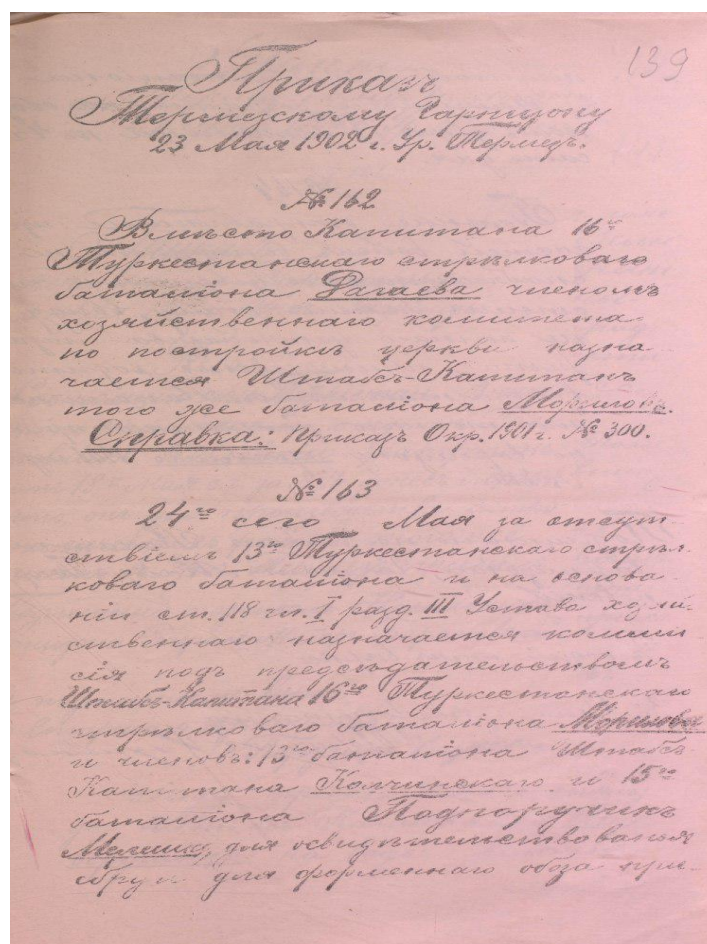 139
Приказъ
Термезскому Гарнизону
23 Мая 1902 г. Ур. Термезъ.
№ 162
Вмѣсто Капитана 16го
Туркестанскаго стрѣлковаго
баталіона Дагаева членомъ
хозяйственнаго комитета
по постройкѣ церкви назна
чается Штабсъ-Капитанъ
того же баталіона
Справка: Приказъ Окр. 1901 г. № 300.
№ 163
24го сего Мая за отсут
ствіемъ 13го Туркестанскаго стрѣл
коваго баталіона и на основа
ніи ст. 118 гл. I разд. III Устава хозяй
ственнаго назначается комми
сія подъ предсѣдательствомъ
Штабсъ-Капитана 16го Туркестанскаго
стрѣлковаго баталіона
и членовъ: 13го баталіона Штабсъ
Капитана Колчинскаго и 15го
баталіона Подпоручикъ
для освидѣтельствованія
сбруи для форменнаго обоза при-